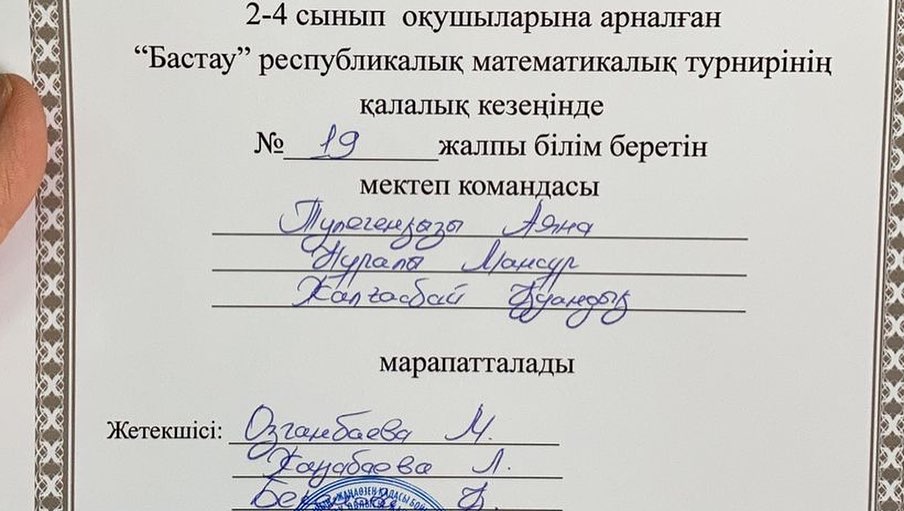 2-4 сынып оқушыларына арналған
“Бастау” республикалық математикалық турнирінің
қалалық кезеңінде
№ 19 жалпы білім беретін
мектеп командасы
Түлегенқызы Аяна
Нұралы Мансур
Жалғасбай Қуандық
марапатталады
Жетекшісі: Озганбаева М.
Ханабаева Л.
Б.
ЖАҢАӨЗЕН ҚАЛАСЫ